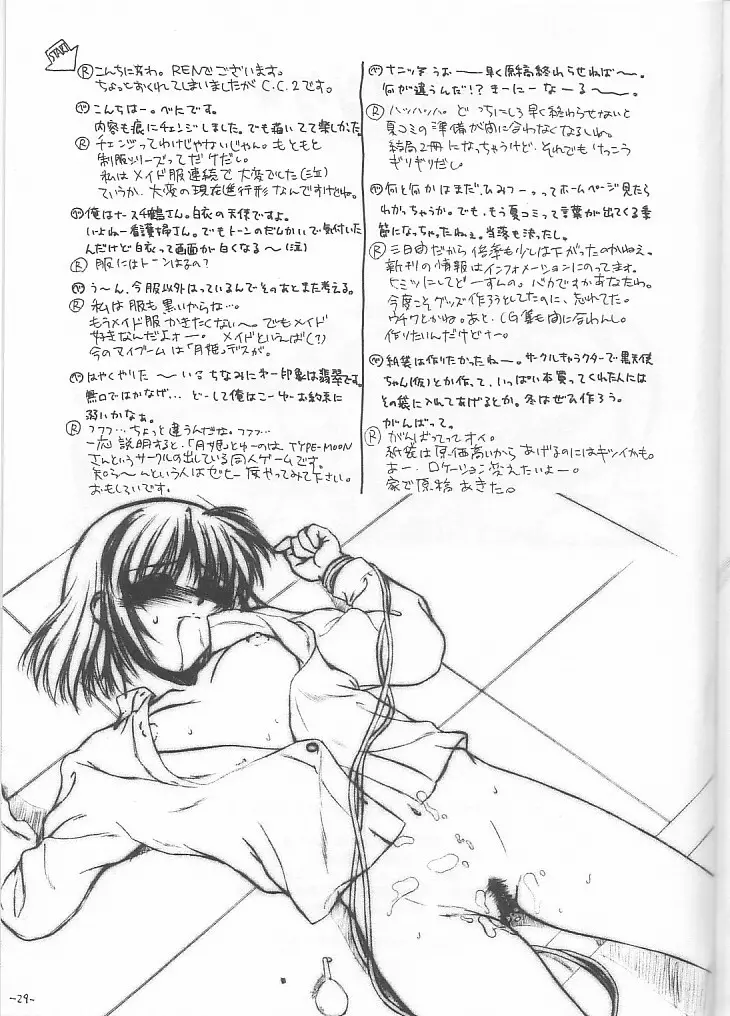 START
Ⓡこんちにわ。RENでございます。
ちょっとおくれてしまいましたがC.C.2です。
こんちはー。べにです。
内容も痕にチェンジしました。でも描いてて楽しかった。
Ⓡチェンジってわけじゃないじゃん。もともと
制服シリーズってだケだい。
私はメイド服連続で大変でした(泣)
ていうか、大変の現在進行形なんですけどね。
俺はナース千鶴さん。白衣の天使ですよ。
いよぉねー看護婦さん。でもトーンのだんかいで気付いた
んだけど白衣って画面が白くなる〜(泣)
Ⓡ服にはトーンはるの?
う〜ん、今服以外はっているんでそのあとまた考える。
Ⓡ私は服も黒いからな…。
もうメイド服かきたくない〜。でもメイド
好きなんだよォー。メイドといえば(?)
今のマイゲームは「月姫」デスが。
はやくやりた〜いるちなみに第一印象は翡翠です。
無口ではかなげ…どーして俺はこーゆーお約束に
弱いかなぁ。
Ⓡフフフ…ちょっと違うんだな。フフフ…
一応説明すると、「月姫」とゆーのは、TYPE-MOON
さんというサークルの出している同人ゲームです。
知ら〜んという人はゼッヒ一度やってみて下さい。
おもしろいです。
ナニッ!うおー早く原稿終わらせねば〜。
何が違うんだ!?きーにーなーるー〜ー。
Ⓡハッハッハ。どっちにしろ早く終わらせないと
夏コミの準備が間に合わなくなるしね。
結局2冊になっちゃうけど、それでもけっこう
ギリギリだし
何と何かはまだひみつー。ってホームページ見たら
わかっちゃうか。でも、もう夏コミって言葉が出てくる季
節になっちゃったねぇ。当落も決ったし。
Ⓡ三日間だから倍率も少しは下がったのかねぇ。
新刊の情報はインフォメーションにのってます。
ヒミツにしてどーすんの。バカですかあなたわ。
今度こそグッズ作ろうとしてたのに、忘れてた。
ウチワとかね。あと、CG集も間に合わんし。
作りたいんだけどナー。
紙袋は作りたかったねー。サークルキャラクターで黒天使
ちゃん(仮)とか作って、いっぱい本買ってくれた人には
その袋に入れてあげるとか。冬はぜひ作ろう。
がんばって。
Ⓡがんばってってオイ。
紙袋は原価高いからあげるのにはキツイかも。
あー、ロケーション変えたいよー。
家で原稿あきた。
-29-